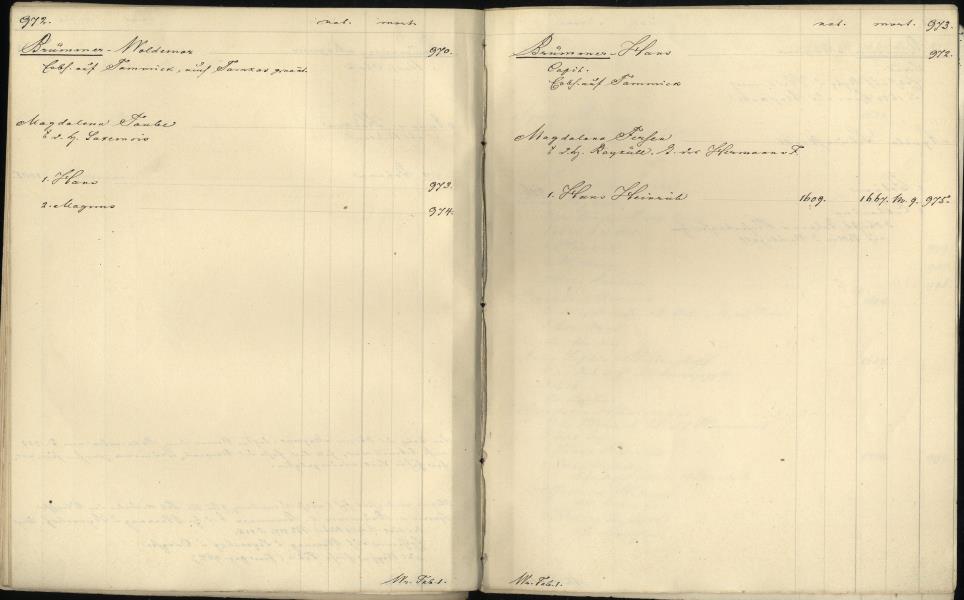 972. nat. mort.
Brümmer - Woldemar 970.
Erbh. auf Tammick, auch Tamkas genant.
Magdalena Taube
a. d. H. Saxemois
1. Hans 973.
2. Magnus 974.
W. Tab. 1.
nat. mort. 973.
Brümmer - Hans 972.
Capit.
Erbh. auf Tammick
Magdalena Fersen
a. d. H. Rayküll. T. des Hermanns F.
1. Hans Heinrich 1609. 1667. M. 9. 975.
W. Tab. 1.